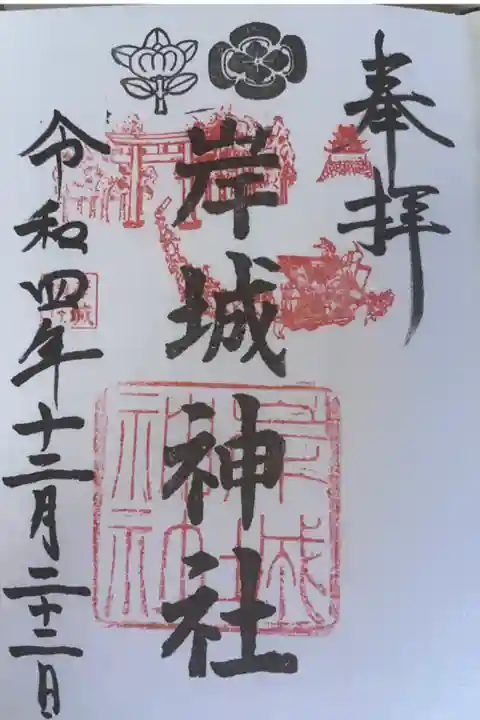 奉拝
岸城神社
令和四年十二月二十二日